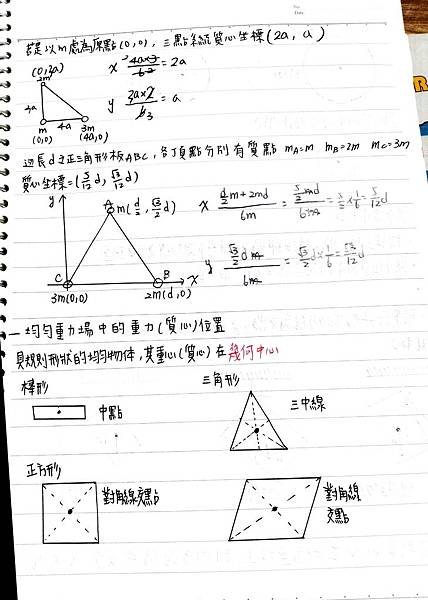 若是以m處為原點(0,0),三點系統質心坐標(2a,a)
(0,3a)
2m
3a
m 4a 3m
(0,0) (4a,0)
x 4a×3/6 = 2a
y 3a×2/6 3 = a
邊長d之正三角形板ABC,各頂點分別有質點 mA=m mB=2m mC=3m
質心坐標=(5/12 d, √3/12 d)
y
A m(d/2, √3/2 d)
C B x
3m(0,0) 2m(d,0)
x (d/2 m+2md)/6m = (5/2 md)/6m = 5/2×1/6 = 5/12 d
y (√3/2 dm)/6m = √3/2 d×1/6 = √3/12 d
一 均勻重力場中的重力(質心)位置
具規則形狀的均勻物体,其重心(質心)在幾何中心
棒形 三角形
中點 三中線
正方形
對角線交點 對角線
交點